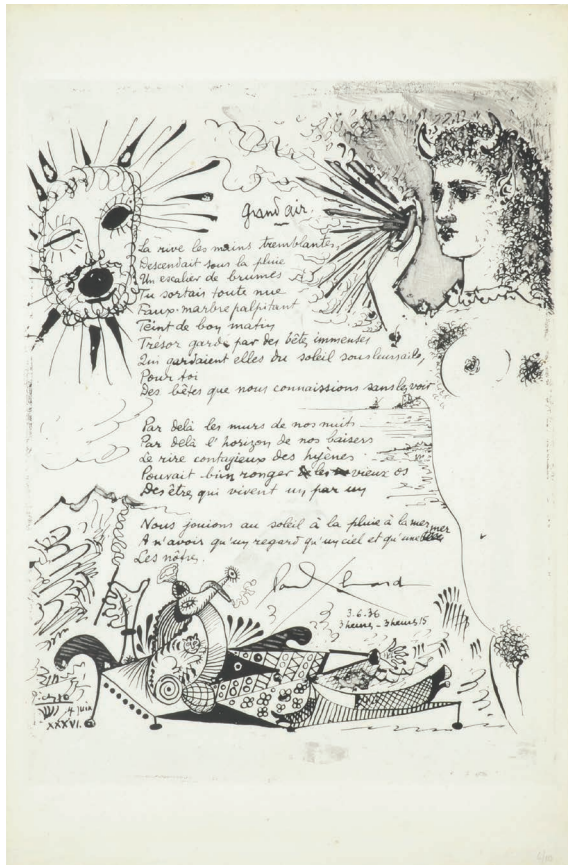 Grand air
La rive les mains tremblantes,
Descendait sous la pluie
Un escalier de brumes
Tu sortais toute nue
Faux marbre palpitant
Teint de bon matin
Tresor gardé par des bêtes immenses
Qui gardaient elles du soleil sous leurs ailes,
Pour toi
Des bêtes que nous connaissions sans les voir
Par delà les murs de nos nuits
Par delà l'horizon de nos baisers
Le rire contagieux des hyènes
Pouvait bien ronger les vieux os
Des êtres qui vivent un par un
Nous jouions au soleil à la pluie à la mer
A n'avoir qu'un regard qu'un ciel et qu'une mer
Les nôtres.
Paul Eluard
3.6.36
3 heures - 3 heures 15
Picasso
4 juin
XXXVI.